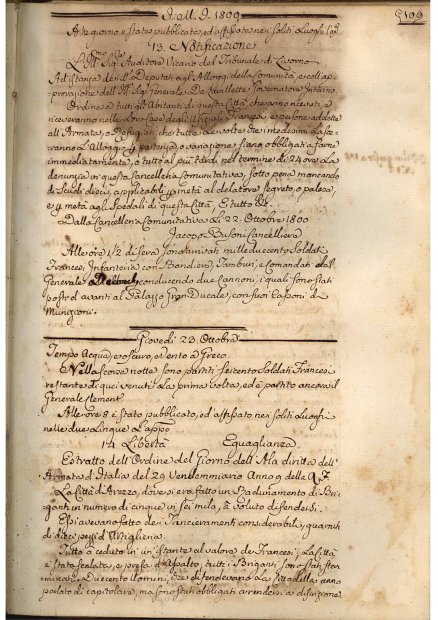 I. M. I. 1800
A dì giorno è stato pubblicato, ed affisso nei soliti Luoghi
13. Notificazione
L' Ill.mo Sig.r Auditore Vicario del Tribunale di Livorno
Ad istanza dei Deputati agli Alloggi della Comunità, e coll'ap=
provazione dell' Ill. Sig. Generale De Mirlette Governatore Interino
Ordina a tutti gli Abitanti di questa Città che anno ricevuti, e
riceveranno nelle loro Case degli Uffiziali Francesi, e persone addette
all'Armata, o Refugiati che tutte le volte che i medesimi Lasce=
ranno l'Alloggio p partenza, o variazione siano obbligati a farne
immediatamente, o tutto al più tardi nel termine di 24 ore la
denunzia in questa Cancelleria Comunitativa, sotto pena mancando
di Scudi dieci, applicabili p metà al delatore segreto, o palese,
e p metà agli Spedali di questa Città, E tutto &c.
Dalla Cancelleria Comunitativa Lì 22. Ottobre 1800
Jacopo Busoni Cancelliere
Alle ore 1/2 di sera sono arrivati mille duecento Soldati
Francesi Infanteria con Bandiera, Tamburi, e Comandati dal
Generale conducendo due Cannoni, i quali sono stati
posti avanti al Palazzo Gran Ducale, con suoi Cassoni di
Munizioni.
Giovedì 23. Ottobre
Tempo Acqua, e oscuro, e Vento a Greco
Nella scorsa notte sono partiti seicento Soldati Francesi
restante di quei venuti La prima volta, ed è partito ancora il
Generale Clement
Alle ore 8 è stato pubblicato, ed affisso nei soliti Luoghi
nelle due Lingue L'app.e
14 Libertà Eguaglianza
Estratto dell'Ordine del Giorno dell'Ala diritta dell'
Armata d'Italia del 29 Vendemmiario Anno 9 della R. F.
La Città di Arezzo, dove si era fatto un Radunamento di Bri
ganti in numero di cinque in sei mila, à voluto difendersi.
Essi avevano fatto dei Trincieramenti considerabili, guarniti
di dieci pezzi d'Artiglieria.
Tutto à ceduto in un istante al valore dei Francesi, La Città
è stata scalata, e presa d'Assalto, tutti i Briganti sono stati ster
minati. Duecento Uomini, che difendevano La Cittadella anno
parlato di capitolare, ma sono stati obbligati a rendersi a discrezione